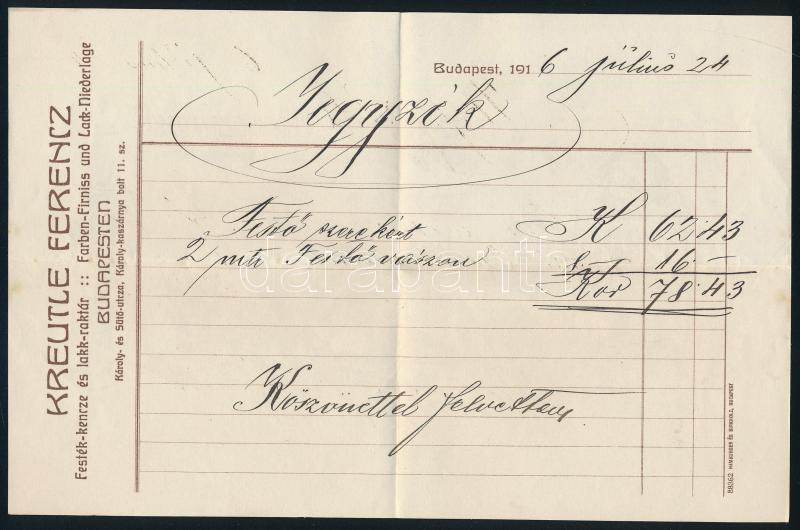 KREUTLE FERENCZ
Festék-kencze és lakk-raktár :: Farben-Firniss und Lack-Niederlage
BUDAPESTEN
Károly- és Sütő-utcza, Károly-kaszárnya bolt 11. sz.
Budapest, 1916 július 24
Jegyzék
Festő szerekért K 62·43
2 mtr Festő vászon 16 —
Kor 78·43
Köszönettel felvettem
darabanth.com
88362 HAMBURGER ÉS BIRKHOLZ, BUDAPEST